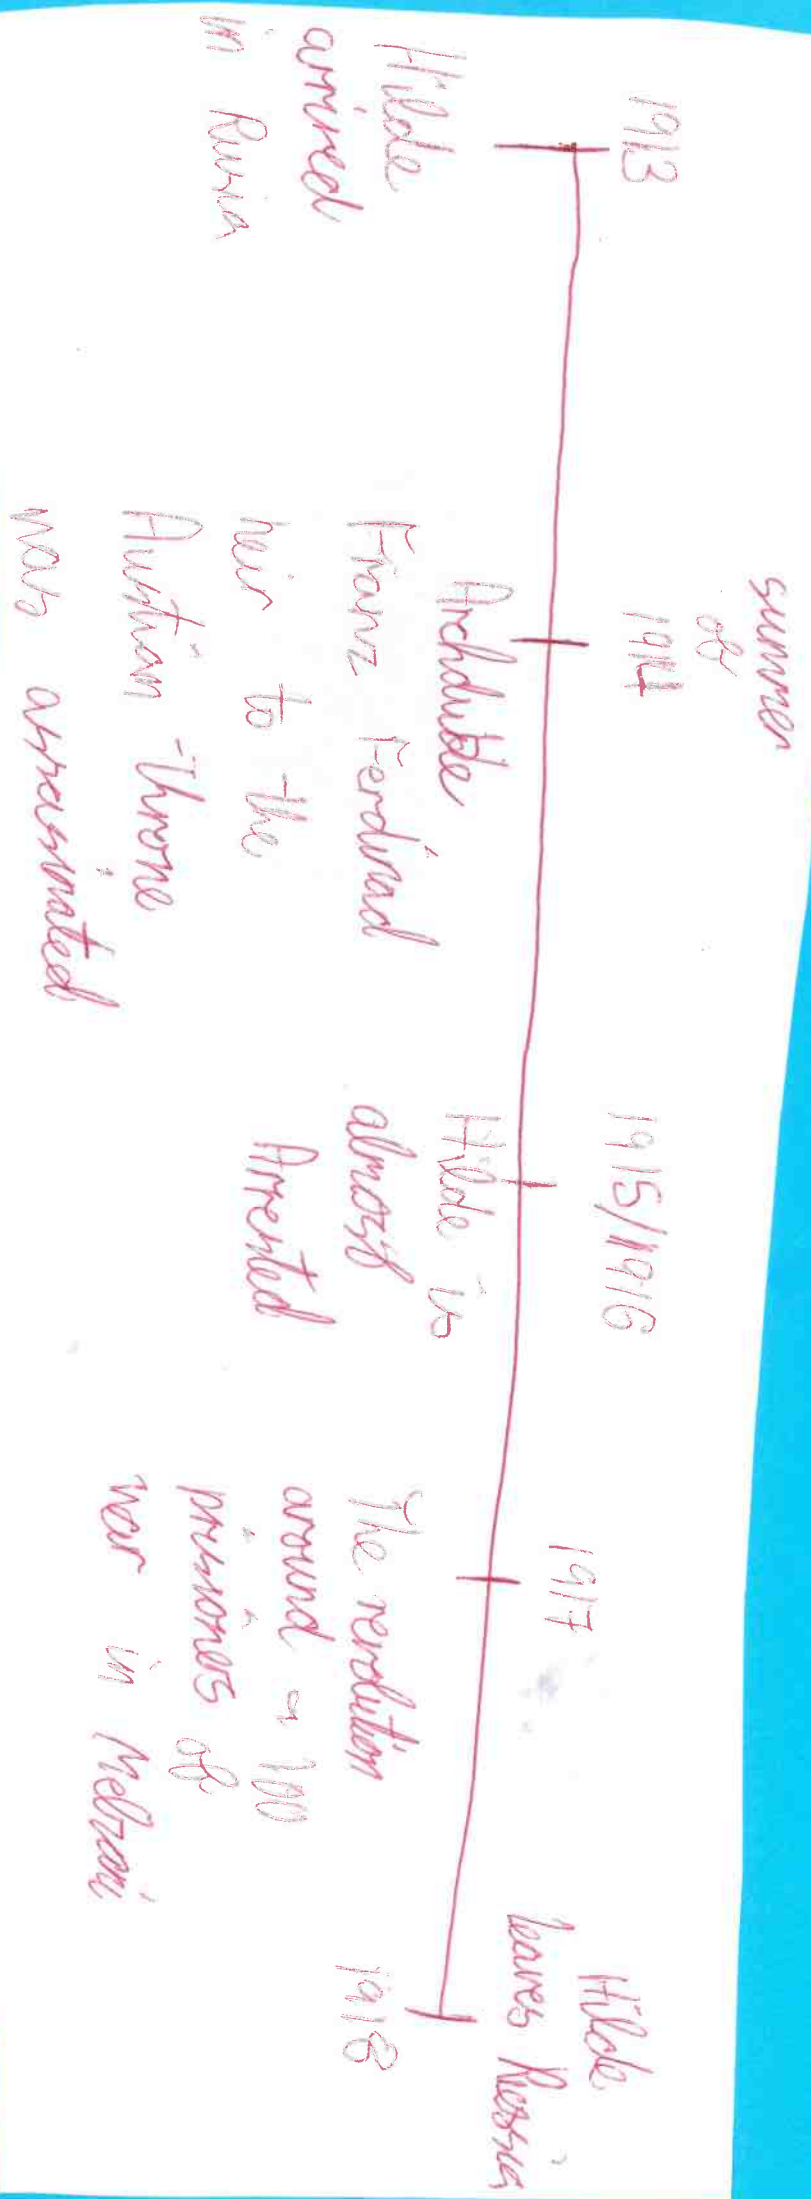 1913
Hilde
arrived
in Russia
summer
of
1914
Archduke
Franz Ferdinad
heir to the
Austrian throne
was assassinated
1915/1916
Hilde is
almost
Arrested
1917
The revolution
around 100
prisiones of
war in
Hilde
leaves Russia
1918